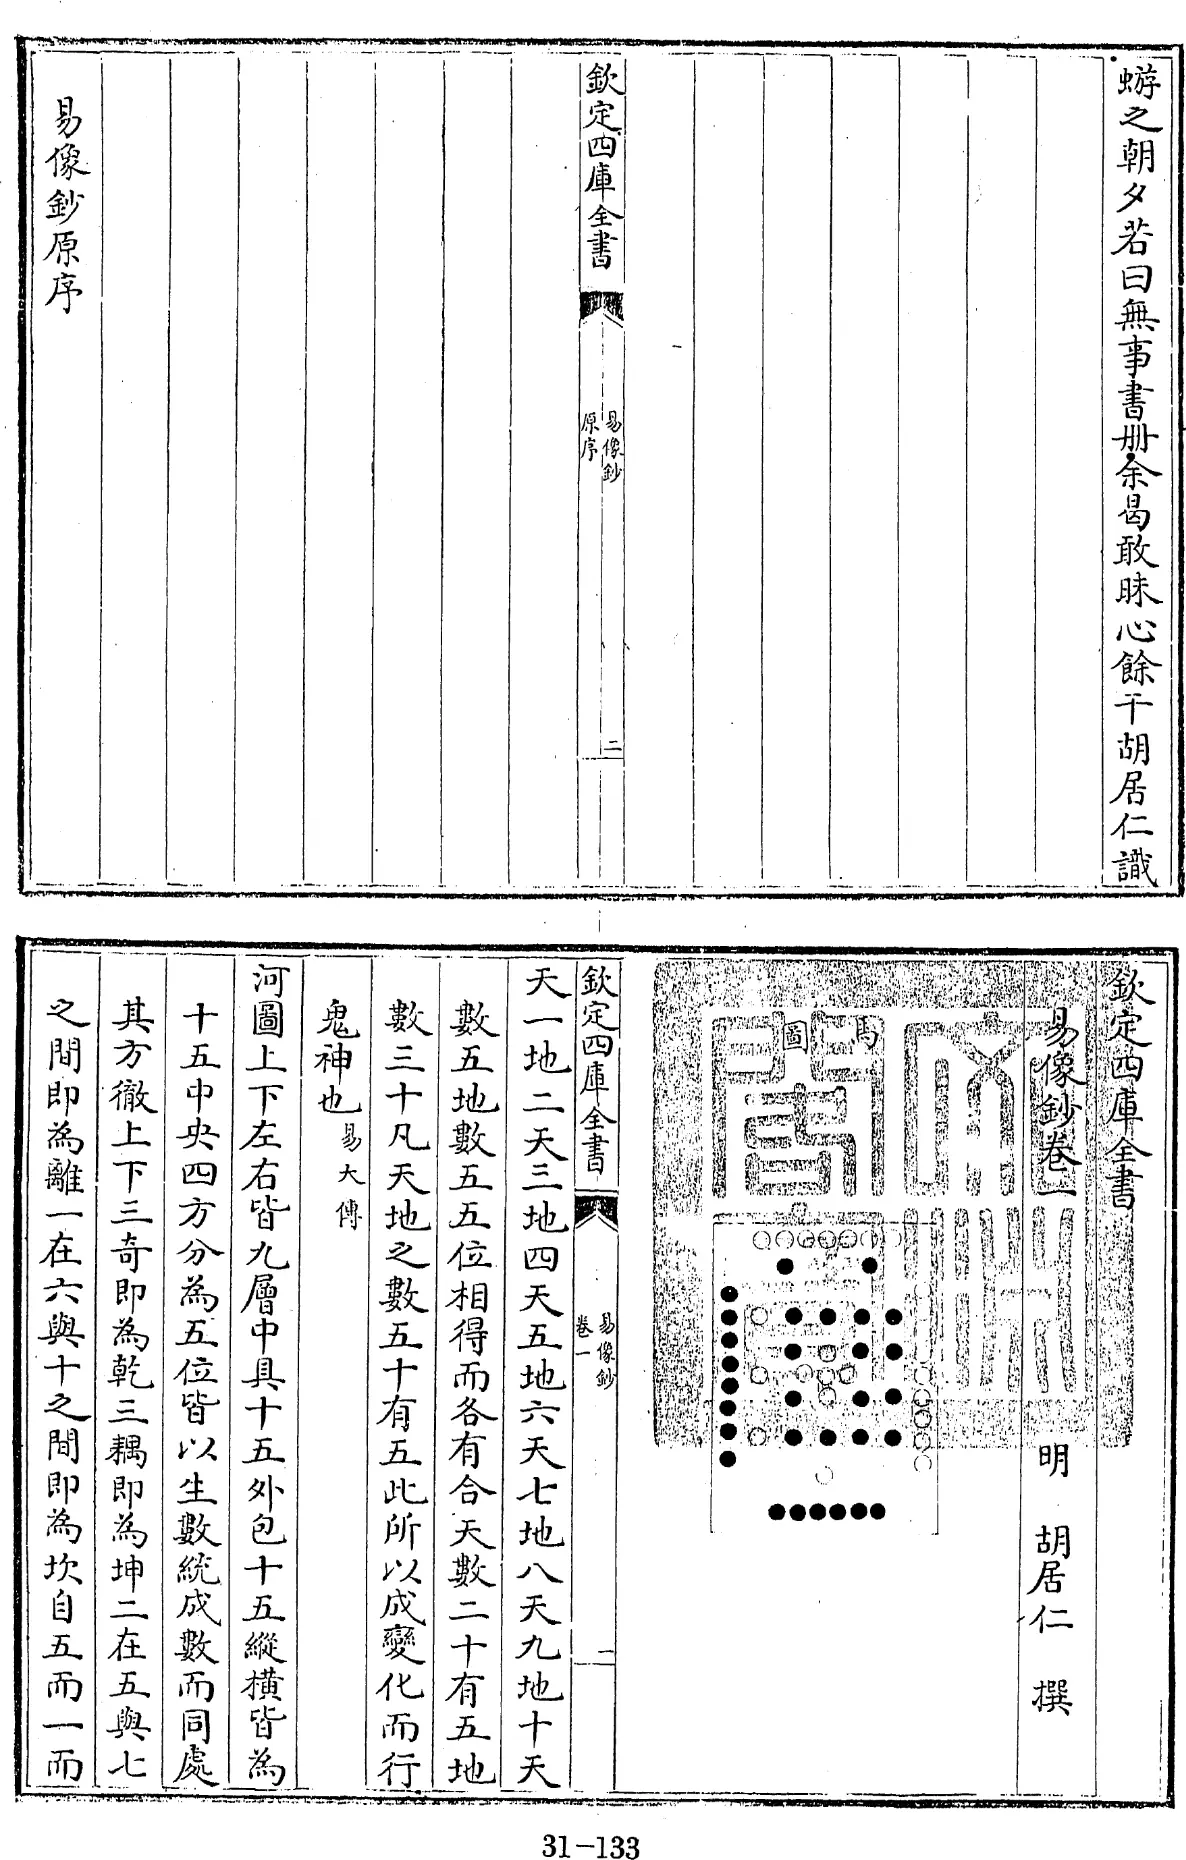 蝣之朝夕若曰無事書册余曷敢昧心餘干胡居仁識
欽定四庫全書
易像鈔
原序
二
易像鈔原序
欽定四庫全書
易像鈔卷一
明 胡居仁 撰
馬圖
欽定四庫全書
易像鈔
卷一
一
天一地二天三地四天五地六天七地八天九地十天
數五地數五五位相得而各有合天數二十有五地
數三十凡天地之數五十有五此所以成變化而行
鬼神也易大傳
河圖上下左右皆九層中具十五外包十五縱橫皆為
十五中央四方分為五位皆以生數統成數而同處
其方徹上下三奇即為乾三耦即為坤二在五與七
之間即為離一在六與十之間即為坎自五而一而
31-133